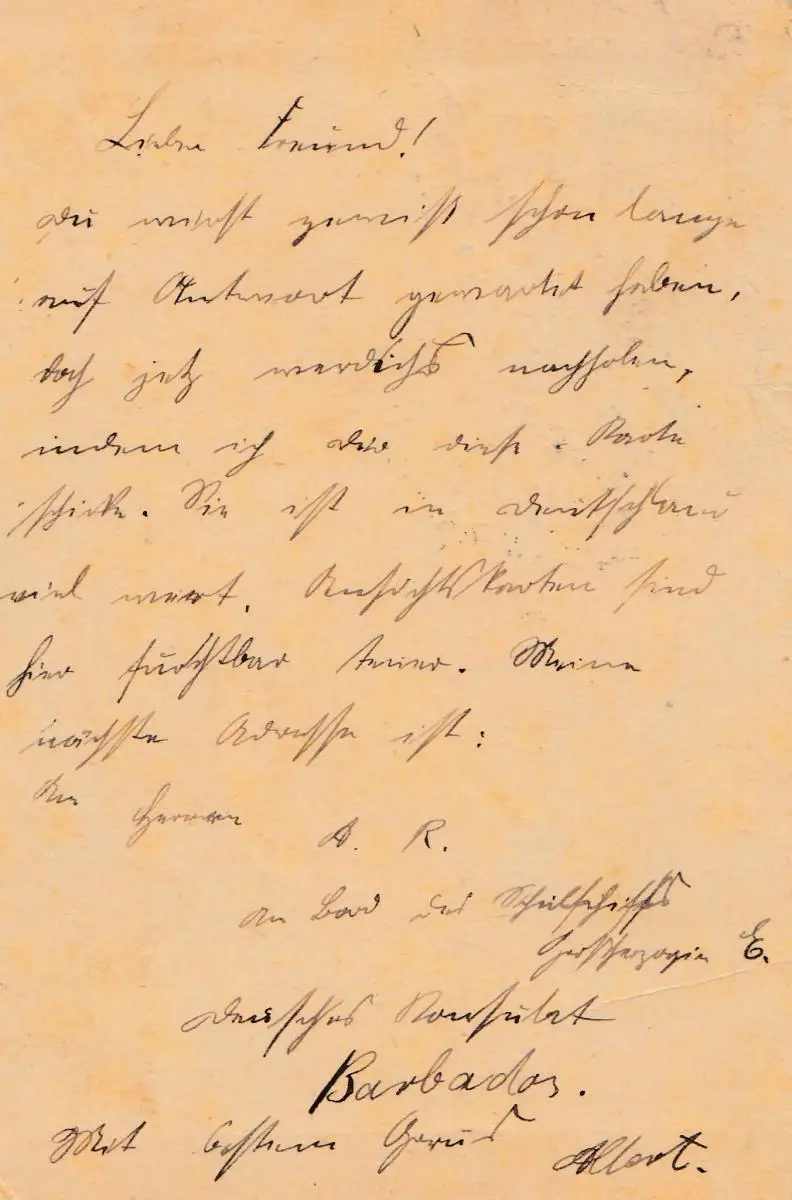 Lieber Freund!
Du wirst gewiß schon lange
auf Antwort gewartet haben,
doch jetz werdichs nachholen,
indem ich dir diese Karte
schicke. Sie ist in Deutschland
viel wert. Ansichtskarten sind
hier furchtbar teuer. Meine
nächste Adresse ist:
An Herrn
A. R.
An Bord des Schulschiffs
Großherzogin E.
Deutsches Konsulat
Barbados.
Mit bestem Gruß
Albert.